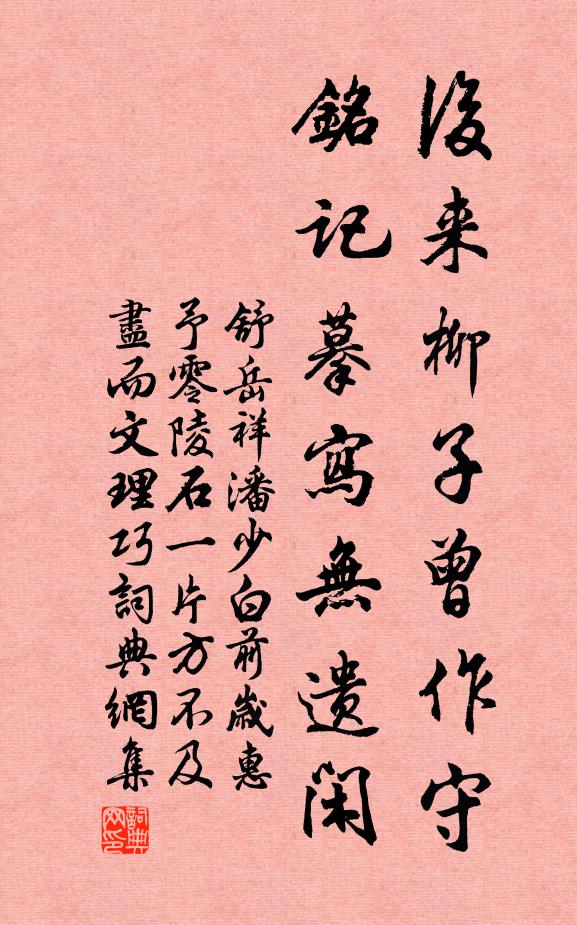 後来柳子曾作守
銘記摹寫無遺閑
舒岳祥潘少白前歲惠
予零陵石一片方不及
盡而文理巧詞典網集
詞典网印